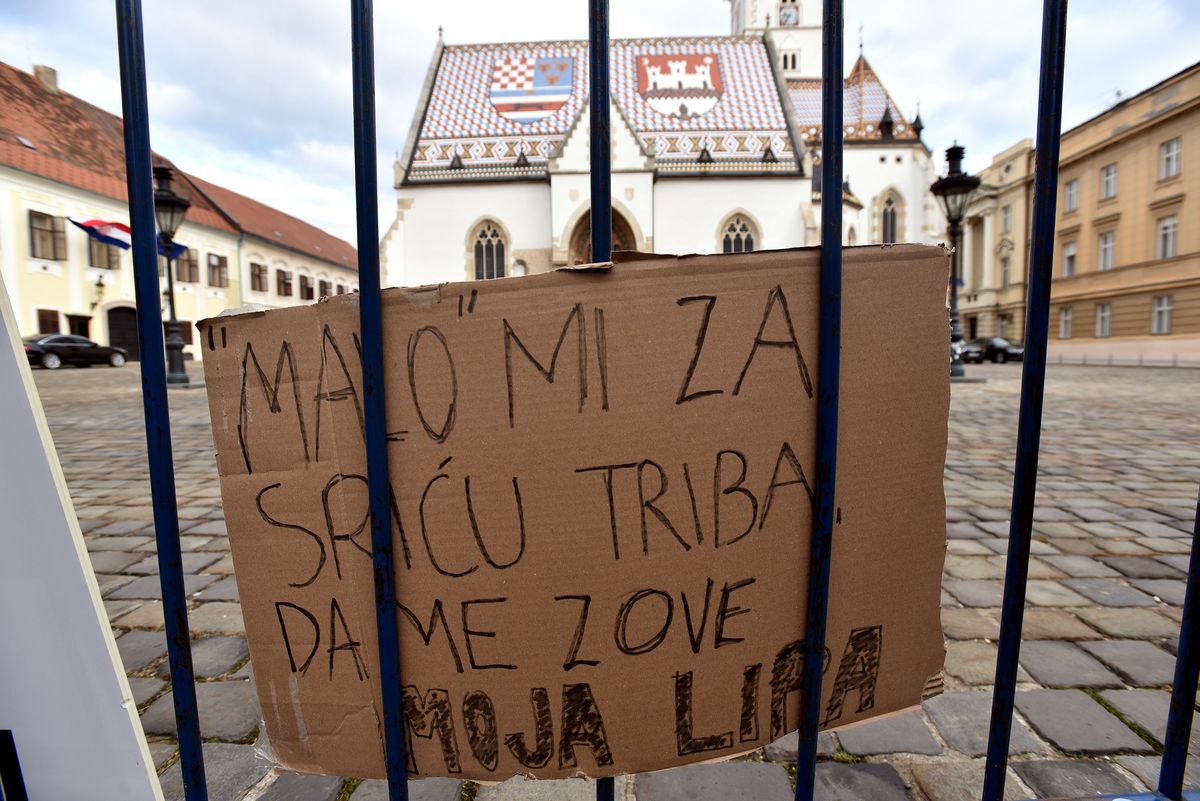 "MALO" MI ZA
SRIĆU TRIBA,
DA ME ZOVE
MOJA LIPA